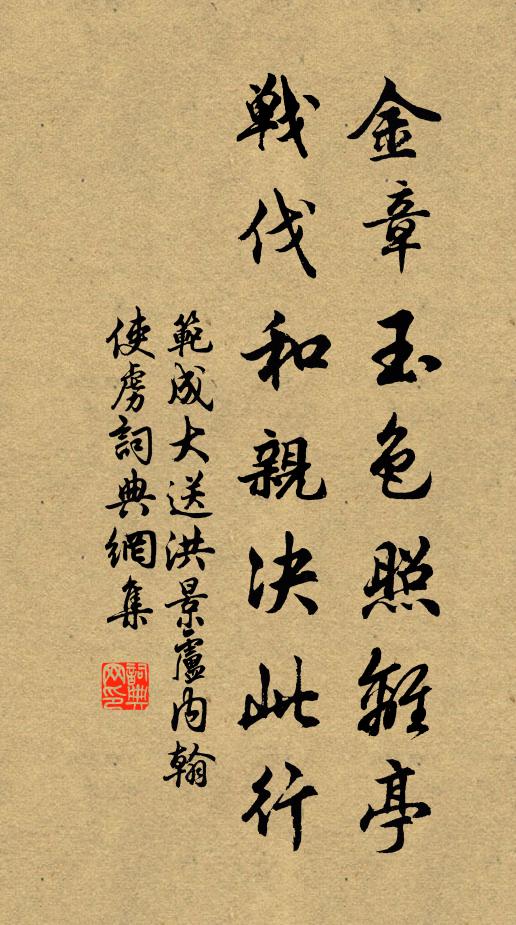 金章玉色照離亭
戰伐和親決此行
範成大送洪景盧內翰
使虜詞典網集
詞典網印